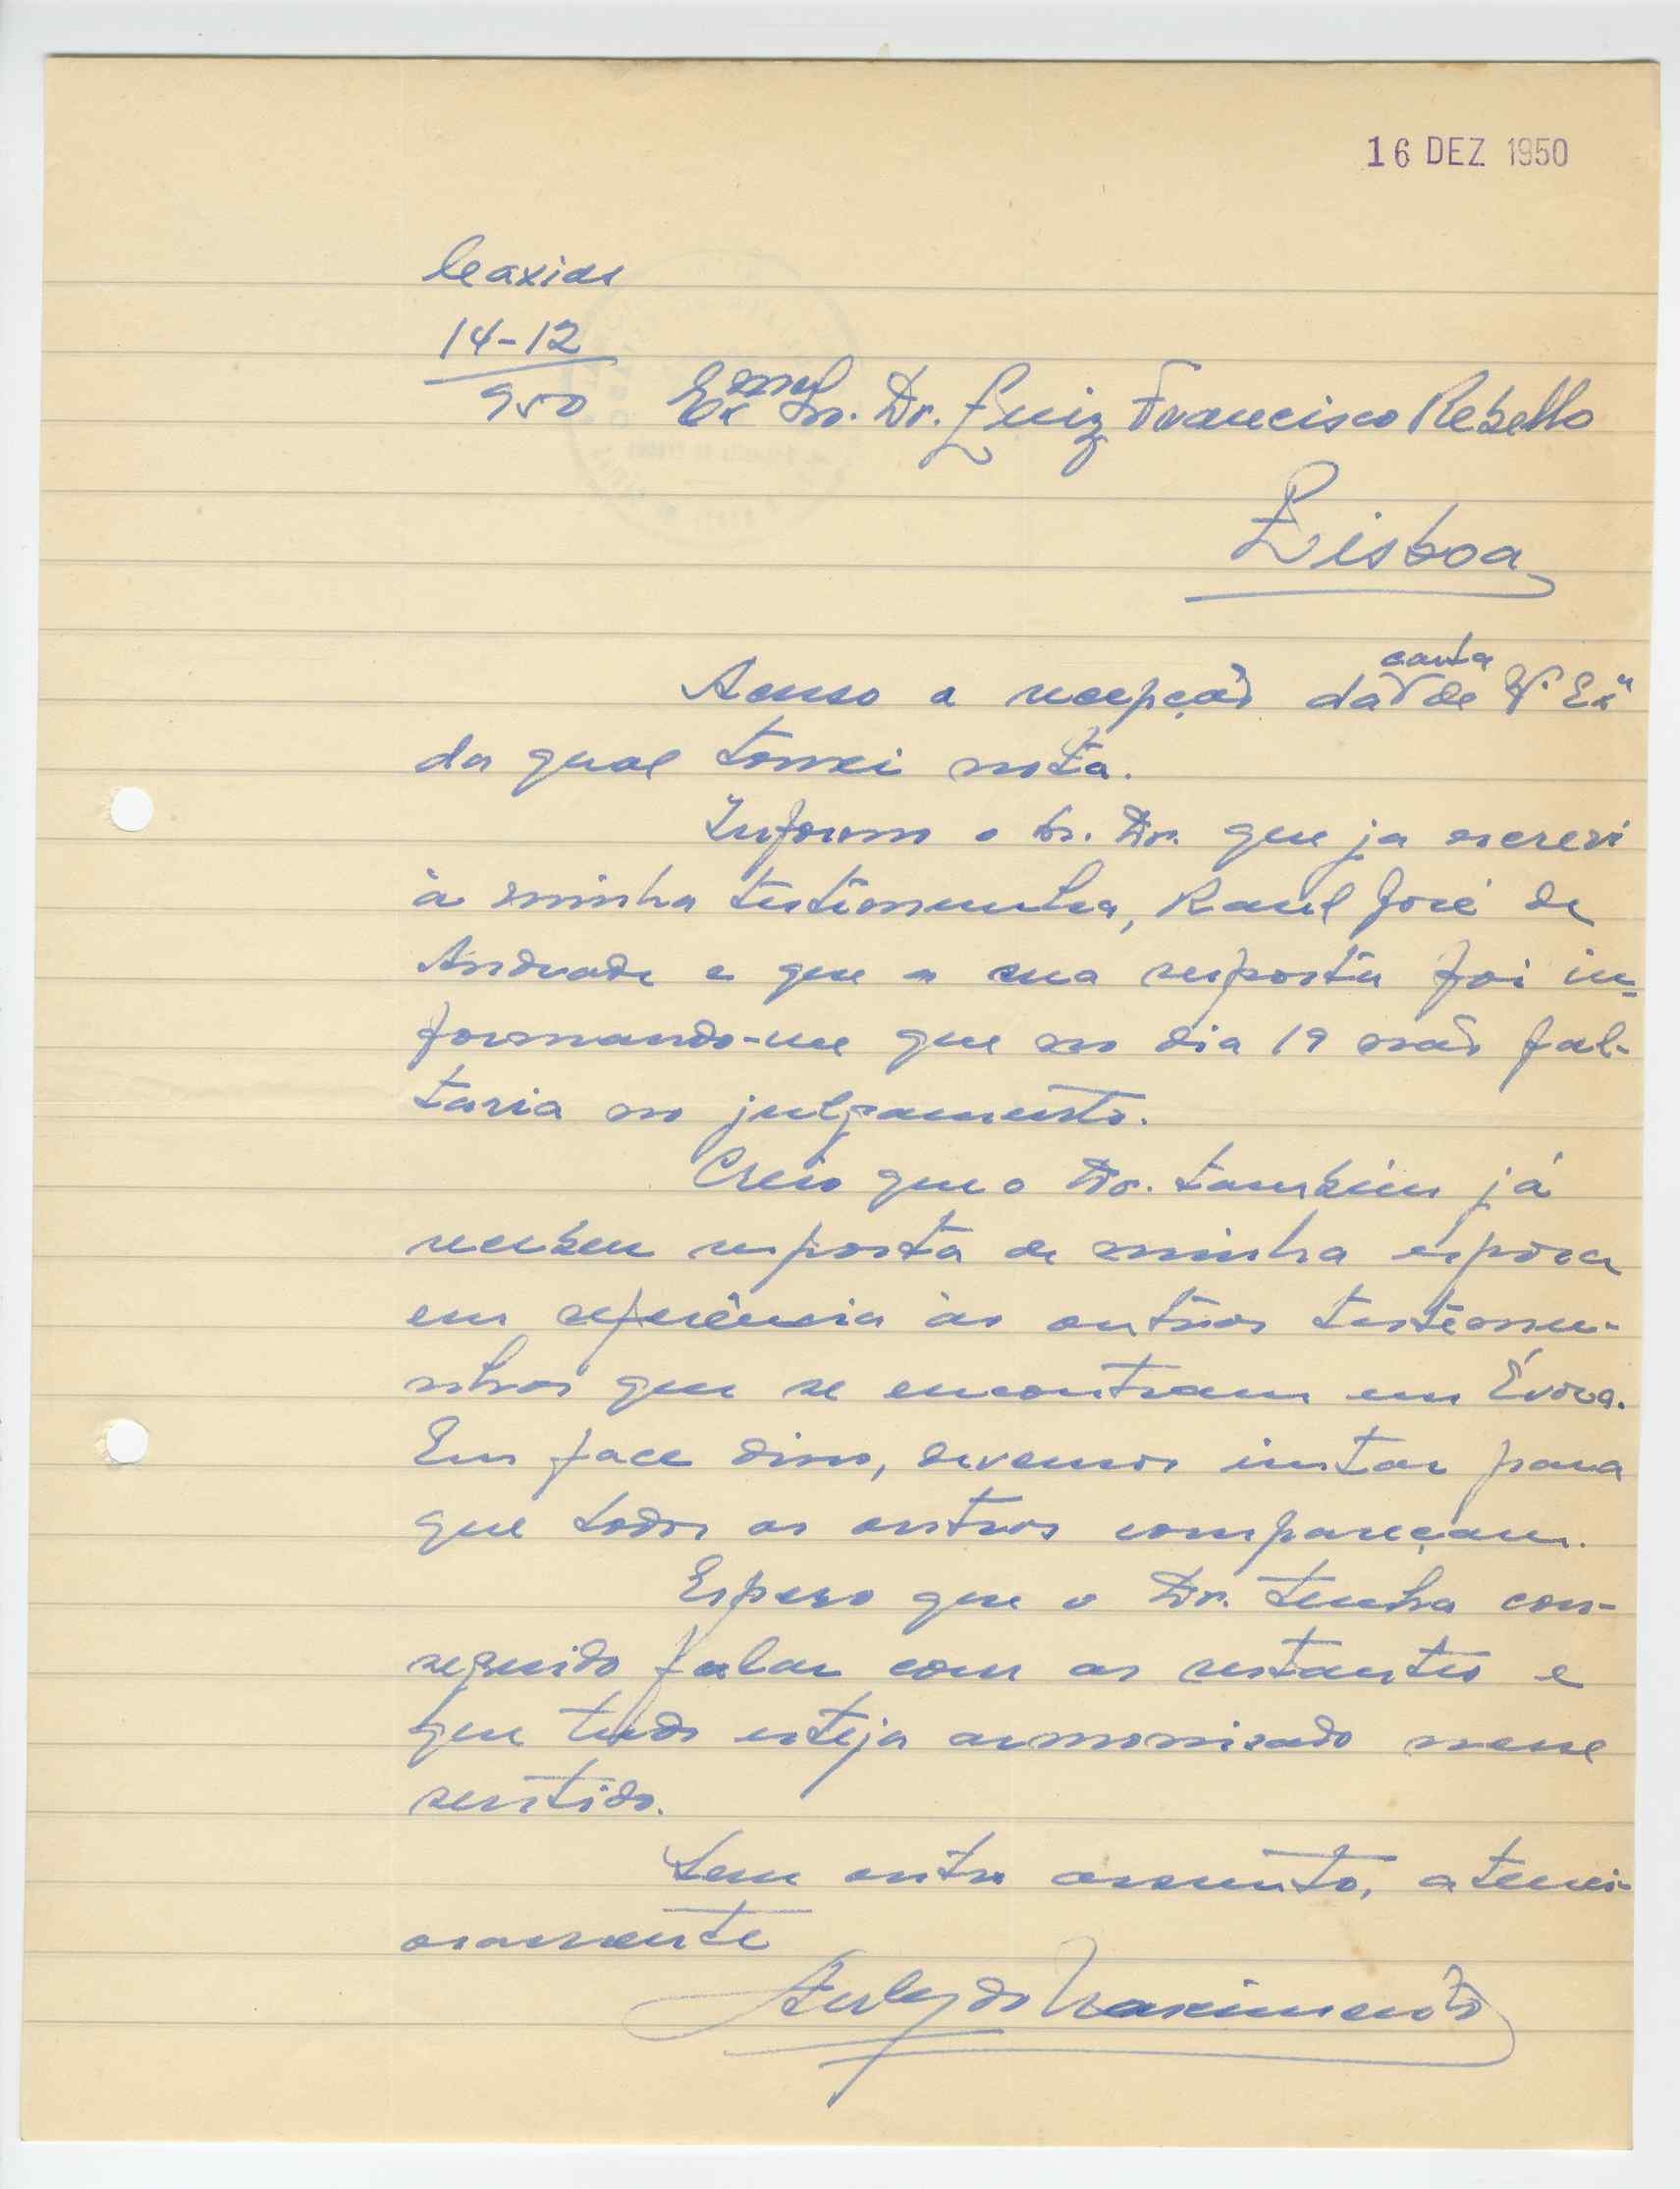 16 DEZ 1950
Caxias
14-12
950
Exmº Sr. Dr. Luiz Francisco Rebello
Lisboa
carta
Acuso a recepção da de V. Exª
da qual tomei nota.
Informo o Sr. Dr. que ja escrevi
à minha testemunha, Raul José de
Andrade e que a sua resposta foi in-
formando-me que no dia 19 não fal-
taria no julgamento.
Creio que o Dr. também já
recebeu resposta de minha esposa
em referência às outras testemu-
nhas que se encontram em Évora.
Em face disso, devemos instar para
que todos os outros compareçam.
Espero que o Dr. tenha con-
seguido falar com os restantes e
que tudo esteja armonisado nesse
sentido.
Sem outro assunto, atenci-
osamente
do Nascimento